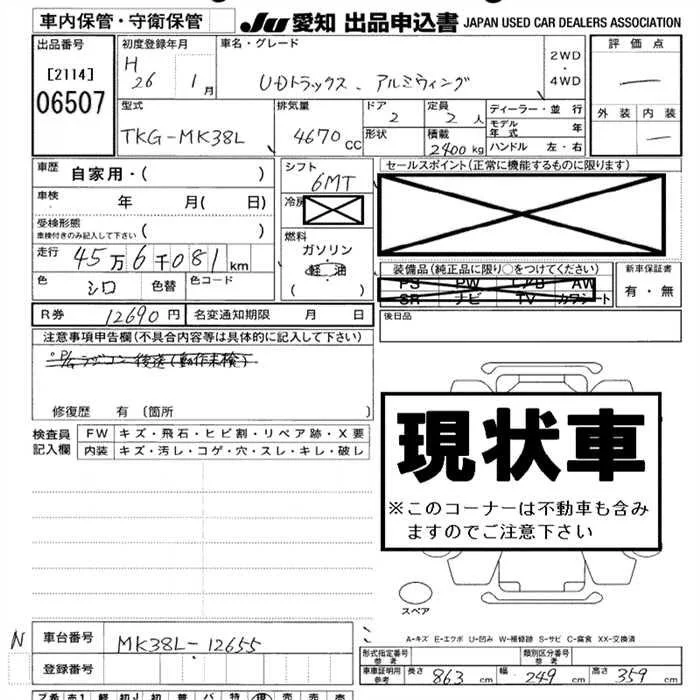 車内保管・守衛保管
JU 愛知 出品申込書 JAPAN USED CAR DEALERS ASSOCIATION
出品番号
[2114]
06507
初度登録年月
H 26 1月
車名・グレード
UDトラックス、アルミウィング
2WD
・
4WD
評価点
—
外装 内装
—
型式
TKG-MK38L
排気量
4670 CC
ドア
2
形状
定員
2人
積載
2400 kg
ディーラー・並行
モデル年式 年
ハンドル 左・右
車歴 自家用・( )
車検 年 月( 日)
受検形態
車検付きのみ記入して下さい ( )
走行 45万6千081km
色 シロ 色替 色コード
シフト
6MT
冷房
燃料
ガソリン
軽油
( )
セールスポイント(正常に機能するものに限ります)
装備品(純正品に限り○をつけてください)
PS PW AW
SR ナビ TV カワシート
新車保証書
有・無
後日品
R券 12690円 名変通知期限 月 日
注意事項申告欄(不具合内容等は具体的に記入して下さい)
P/Gラジコン後送(動作未検)
修復歴 有 (箇所 )
検査員記入欄
FW キズ・飛石・ヒビ割・リペア跡・X要
内装 キズ・汚レ・コゲ・穴・スレ・キレ・破レ
現状車
※このコーナーは不動車も含み
ますのでご注意下さい
スペア
A-キズ E-エクボ U-凹み W-補修跡 S-サビ C-腐食 XX-交換済
N
車台番号 MK38L-12655
登録番号
形式指定番号 参考
類別区分番号 参考
車車証明用 参考 長さ 863 cm 幅 249 cm 高さ 359 cm